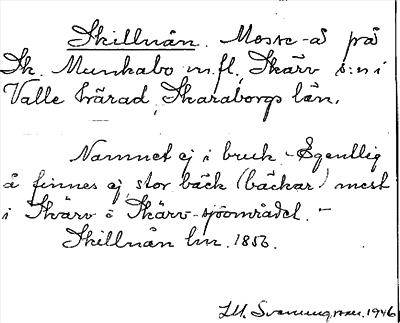 Skillnån. Mosse-å på
Sk. Munkabo m.fl., Skärv s:n i
Valle härad, Skaraborgs län.
Namnet ej i bruk. - Egentlig
å finnes ej, stor bäck (bäckar) mest
i Skärv o Skärv-sjöområdet. -
Skillnån lm. 1856.
1946